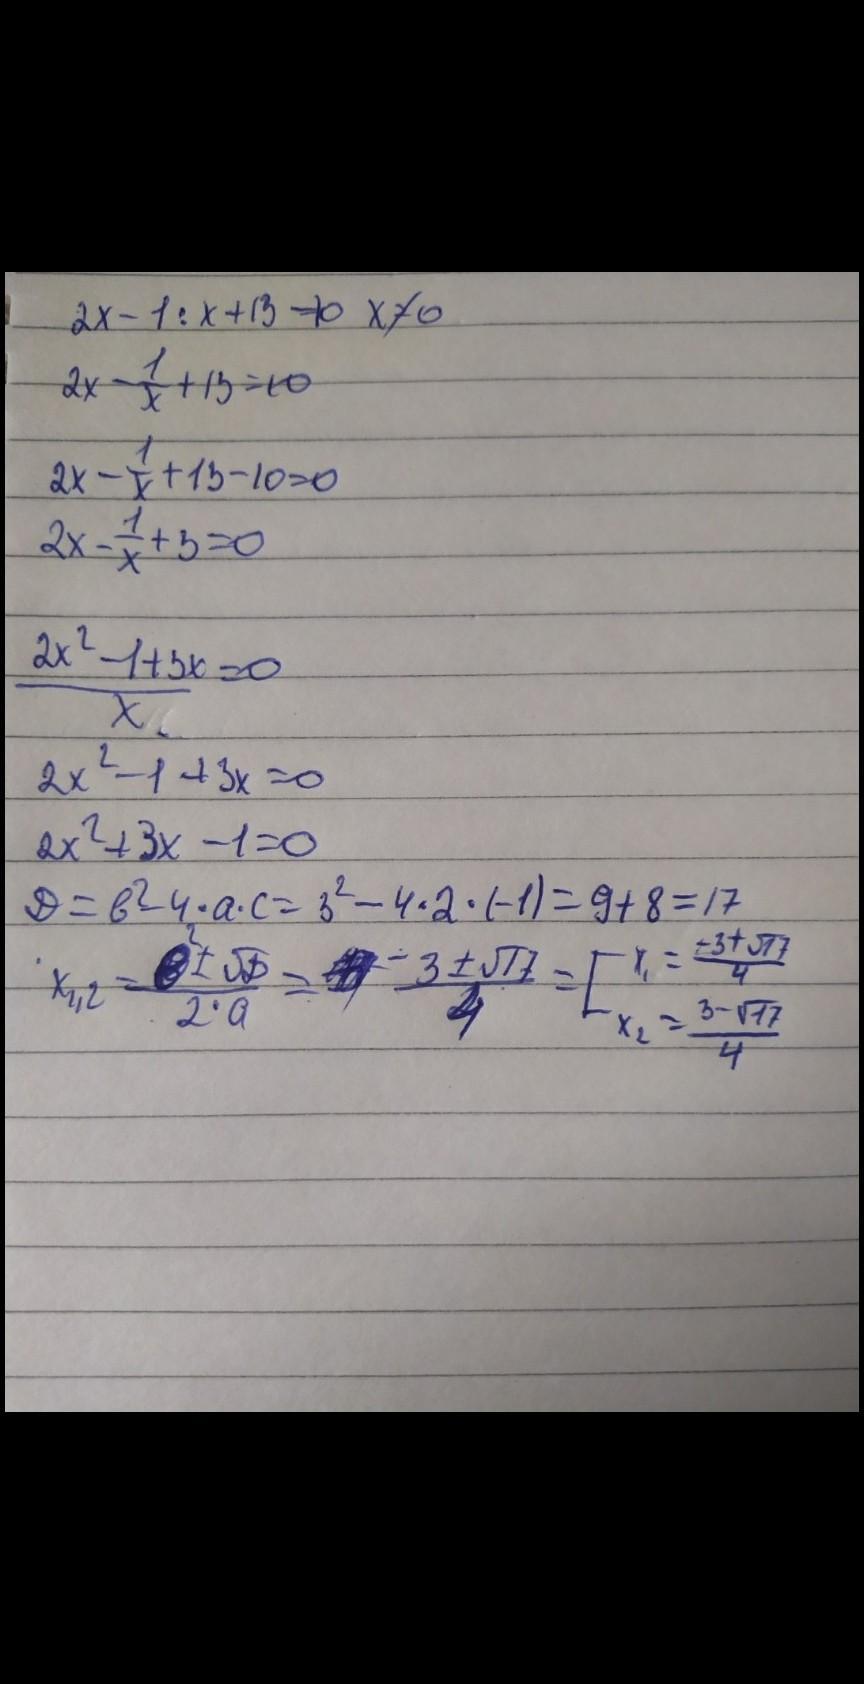 2x - 1 : x + 13 = 10 x ≠ 0
2x - 1/x + 13 = 10
2x - 1/x + 13 - 10 = 0
2x - 1/x + 3 = 0
(2x² - 1 + 3x)/x = 0
2x² - 1 + 3x = 0
2x² + 3x - 1 = 0
D = b² - 4·a·c = 3² - 4·2·(-1) = 9 + 8 = 17
x₁,₂ = ² ± √D / 2·a = -3 ± √17 / 4 = [ x₁ = -3 + √17 / 4
x₂ = 3 - √17 / 4